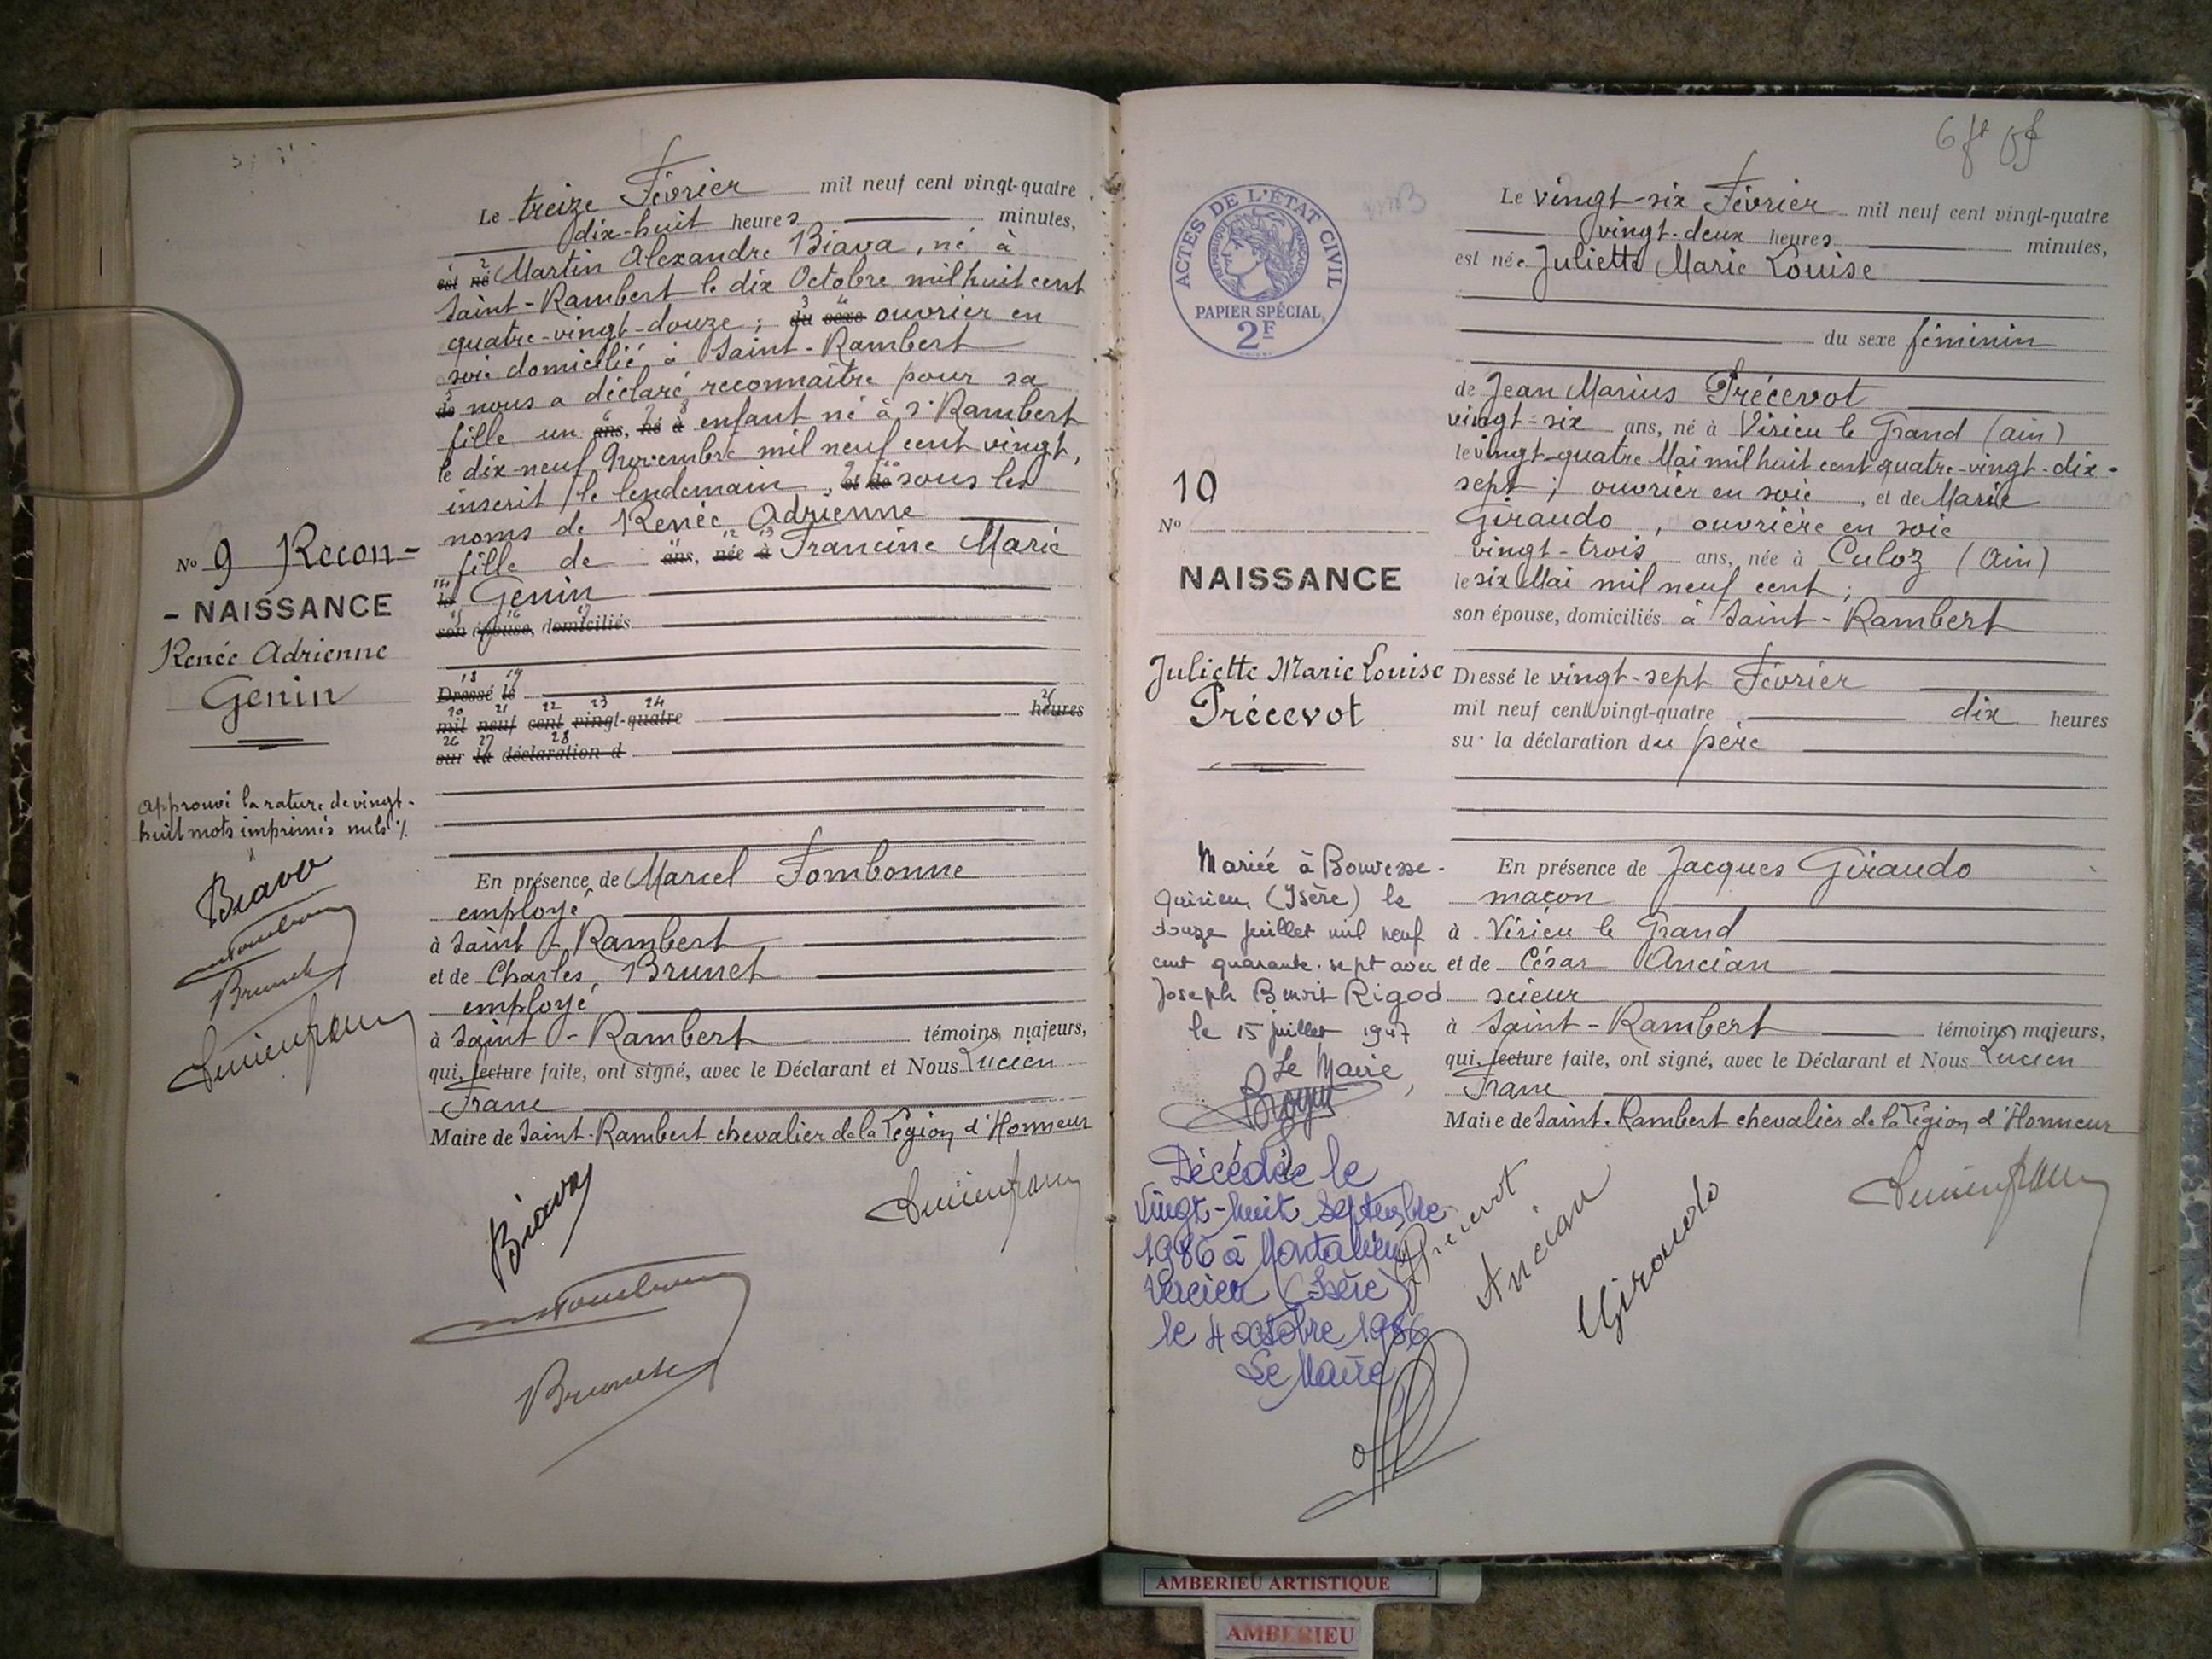 Le treize Février mil neuf cent vingt-quatre
dix-huit heures minutes,
est né Martin Alexandre Biava, né à
Saint-Rambert le dix Octobre mil huit cent
quatre-vingt-douze ; du sexe ouvrier en
soie domicilié à Saint-Rambert
de nous a déclaré reconnaître pour sa
fille un ans, né à enfant né à St Rambert
le dix-neuf Novembre mil neuf cent vingt,
inscrit le lendemain, et de sous les
noms de Renée Adrienne
fille de ans, née à Francine Marie
le Genin
son épouse, domiciliés
Dressé le
mil neuf cent vingt-quatre heures
sur la déclaration d
En présence de Marcel Fombonne
employé
à Saint-Rambert
et de Charles Brunet
employé
à Saint-Rambert témoins majeurs,
qui, lecture faite, ont signé, avec le Déclarant et Nous Lucien
Franc
Maire de Saint-Rambert chevalier de la Légion d'Honneur
Biava
Brunet
No 9 Recon-
- NAISSANCE
Renée Adrienne
Genin
Approuvé la rature de vingt-
huit mots imprimés nuls
Biava
Brunet
ACTES DE L'ÉTAT CIVIL
RÉPUBLIQUE FRANÇAISE
PAPIER SPÉCIAL
2F
Le vingt-six Février mil neuf cent vingt-quatre
vingt-deux heures minutes,
est née Juliette Marie Louise
du sexe féminin
de Jean Marius Précevot
vingt-six ans, né à Virieu le Grand (Ain)
le vingt-quatre Mai mil huit cent quatre-vingt-dix-
sept ; ouvrier en soie, et de Marie
Giraudo, ouvrière en soie
vingt-trois ans, née à Culoz (Ain)
le six Mai mil neuf cent ;
son épouse, domiciliés à Saint-Rambert
Dressé le vingt-sept Février
mil neuf cent vingt-quatre dix heures
sur la déclaration du père
En présence de Jacques Giraudo
maçon
à Virieu le Grand
et de César Ancian
scieur
à Saint-Rambert témoins majeurs,
qui, lecture faite, ont signé, avec le Déclarant et Nous Lucien
Franc
Maire de Saint-Rambert chevalier de la Légion d'Honneur
Précevot
Ancian
Giraudo
10
No
NAISSANCE
Juliette Marie Louise
Précevot
Mariée à Bouvesse-
Quirieu (Isère) le
douze juillet mil neuf
cent quarante-sept avec
Joseph Benoit Rigod
le 15 juillet 1947
Le Maire,
Décédée le
vingt-huit septembre
1986 à Montalieu
Vercieu (Isère)
le 4 octobre 1986
Le Maire
AMBERIEU ARTISTIQUE
AMBERIEU